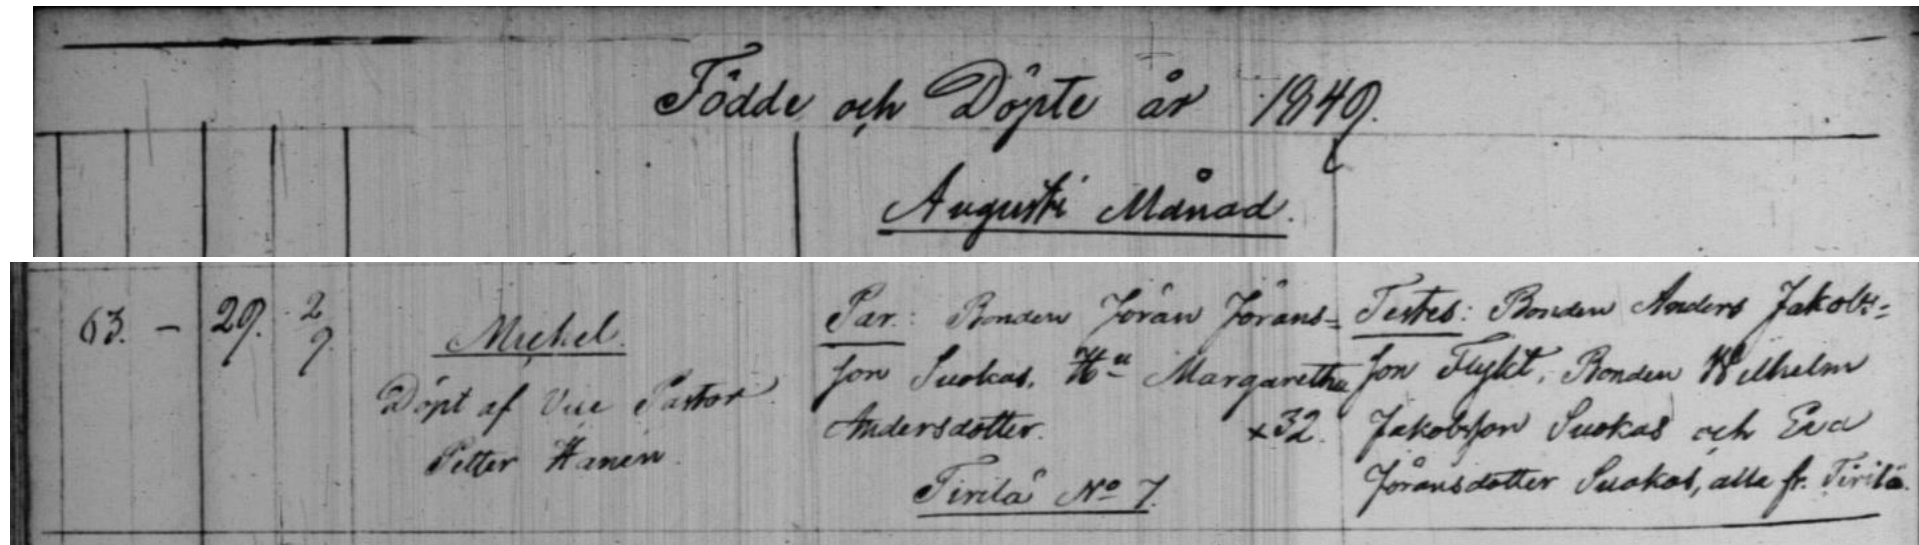 Födde och Döpte år 1849.
Augusti Månad.
63. – 29. 2/9.
Michel.
Döpt af Vice Pastor
Petter Hanén.
Par.: Bonden Jöran Jörans=
son Suokas, Hu Margaretha
Andersdotter. x32.
Tirilä No 7.
Testes: Bonden Anders Jakobs=
son Flykt, Bonden Wilhelm
Jakobsson Suokas och Eva
Jöransdotter Suokas, alla fr. Tirilä.